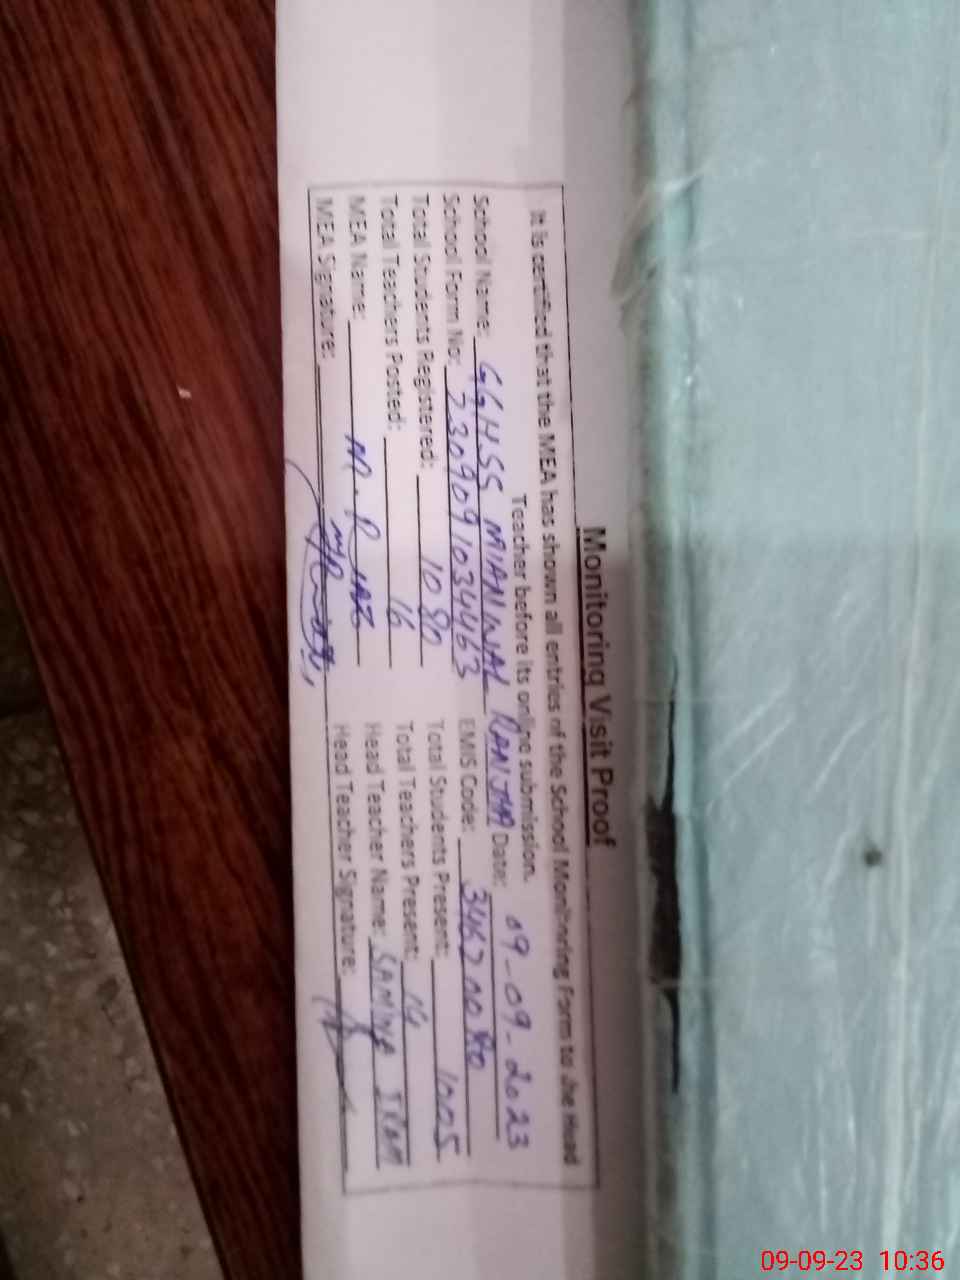 Monitoring Visit Proof
It is certified that the MEA has shown all entries of the School Monitoring Form to the Head
Teacher before its online submission.
School Name: GGHSS MIANWAL RANJHA Date: 09-09-2023
School Form No: 2309091034463 EMIS Code:
Total Students Registered: 1080 Total Students Present: 1005
Total Teachers Posted: 16 Total Teachers Present:
MEA Name: M. Head Teacher Name: SAMINA IRAM
MEA Signature: Head Teacher Signature:
09-09-23 10:36